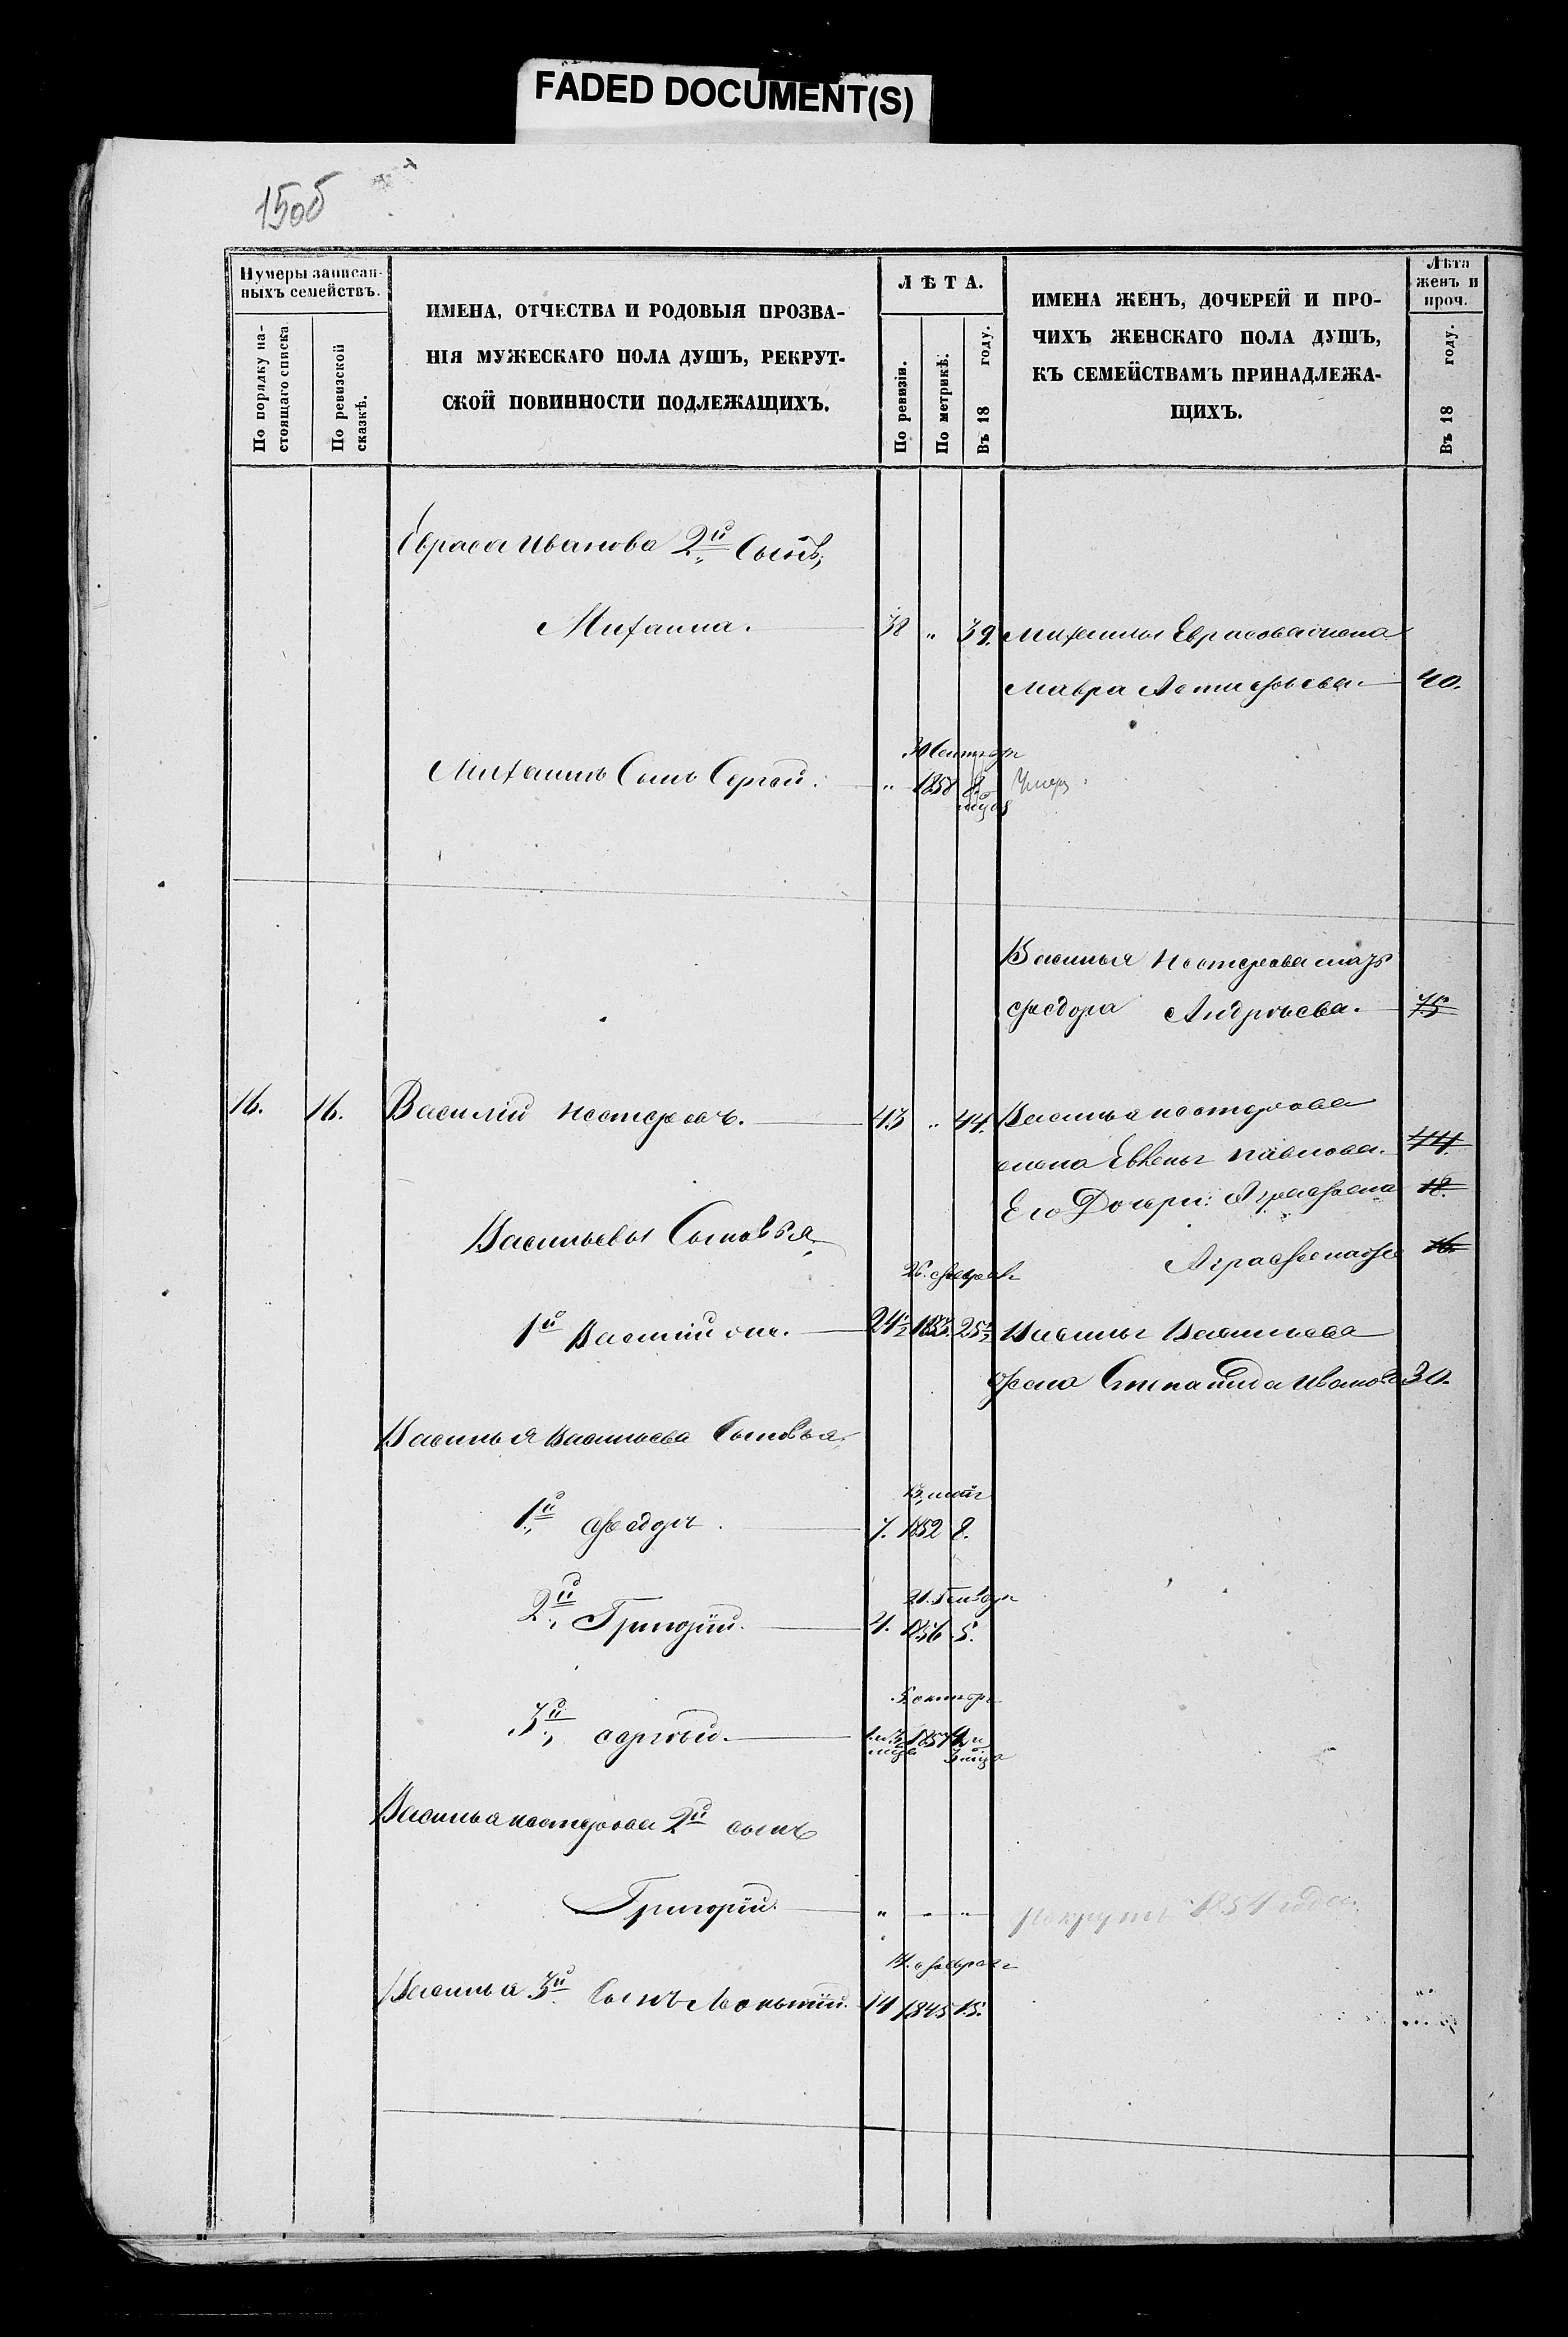 FADED DOCUMENT(S)
150б
Нумеры записан-
ныхъ семействъ.
По порядку на-
стоящаго списка
По ревизской
сказкѣ.
ИМЕНА, ОТЧЕСТВА И РОДОВЫЯ ПРОЗВА-
НІЯ МУЖЕСКАГО ПОЛА ДУШЪ, РЕКРУТ-
СКОЙ ПОВИННОСТИ ПОДЛЕЖАЩИХЪ.
ЛѢТА.
По ревизіи.
По метрикѣ.
Въ 18 году.
ИМЕНА ЖЕНЪ, ДОЧЕРЕЙ И ПРО-
ЧИХЪ ЖЕНСКАГО ПОЛА ДУШЪ,
КЪ СЕМЕЙСТВАМЪ ПРИНАДЛЕЖА-
ЩИХЪ.
Лѣта
женъ и
проч.
Въ 18 году.
Иванова 2й Сынъ,
Михаила. 38 " 39. Михаилы жена
Мавра 40.
30 Сентября
Михаилъ Сынъ Сергей. " 1858 Умеръ
Василья Нестерова мать
Федора Андрѣева. 75
16. 16. Василій Нестеровъ. 43 " 44. Василья Нестерова
жена Павлова. 44.
Его Дочери: Аграфена 18.
Васильевы Сыновья
Аграфена 16.
26. феврал
1й Василій 24½ 25½ Василья Васильева
жена Степанида Иванова 30.
Василья Васильева Сыновья
1й Федоръ. 7. 1852 8.
21. Генваря
2й Григорій. 4. 1856 5.
5 октября
3й Сергѣй. 1857
Василья Нестерова 2й сынъ
Григорій. " " " рекрутъ 1854 года.
14. февраля
Василья 3й Сынъ 14 1845 15.